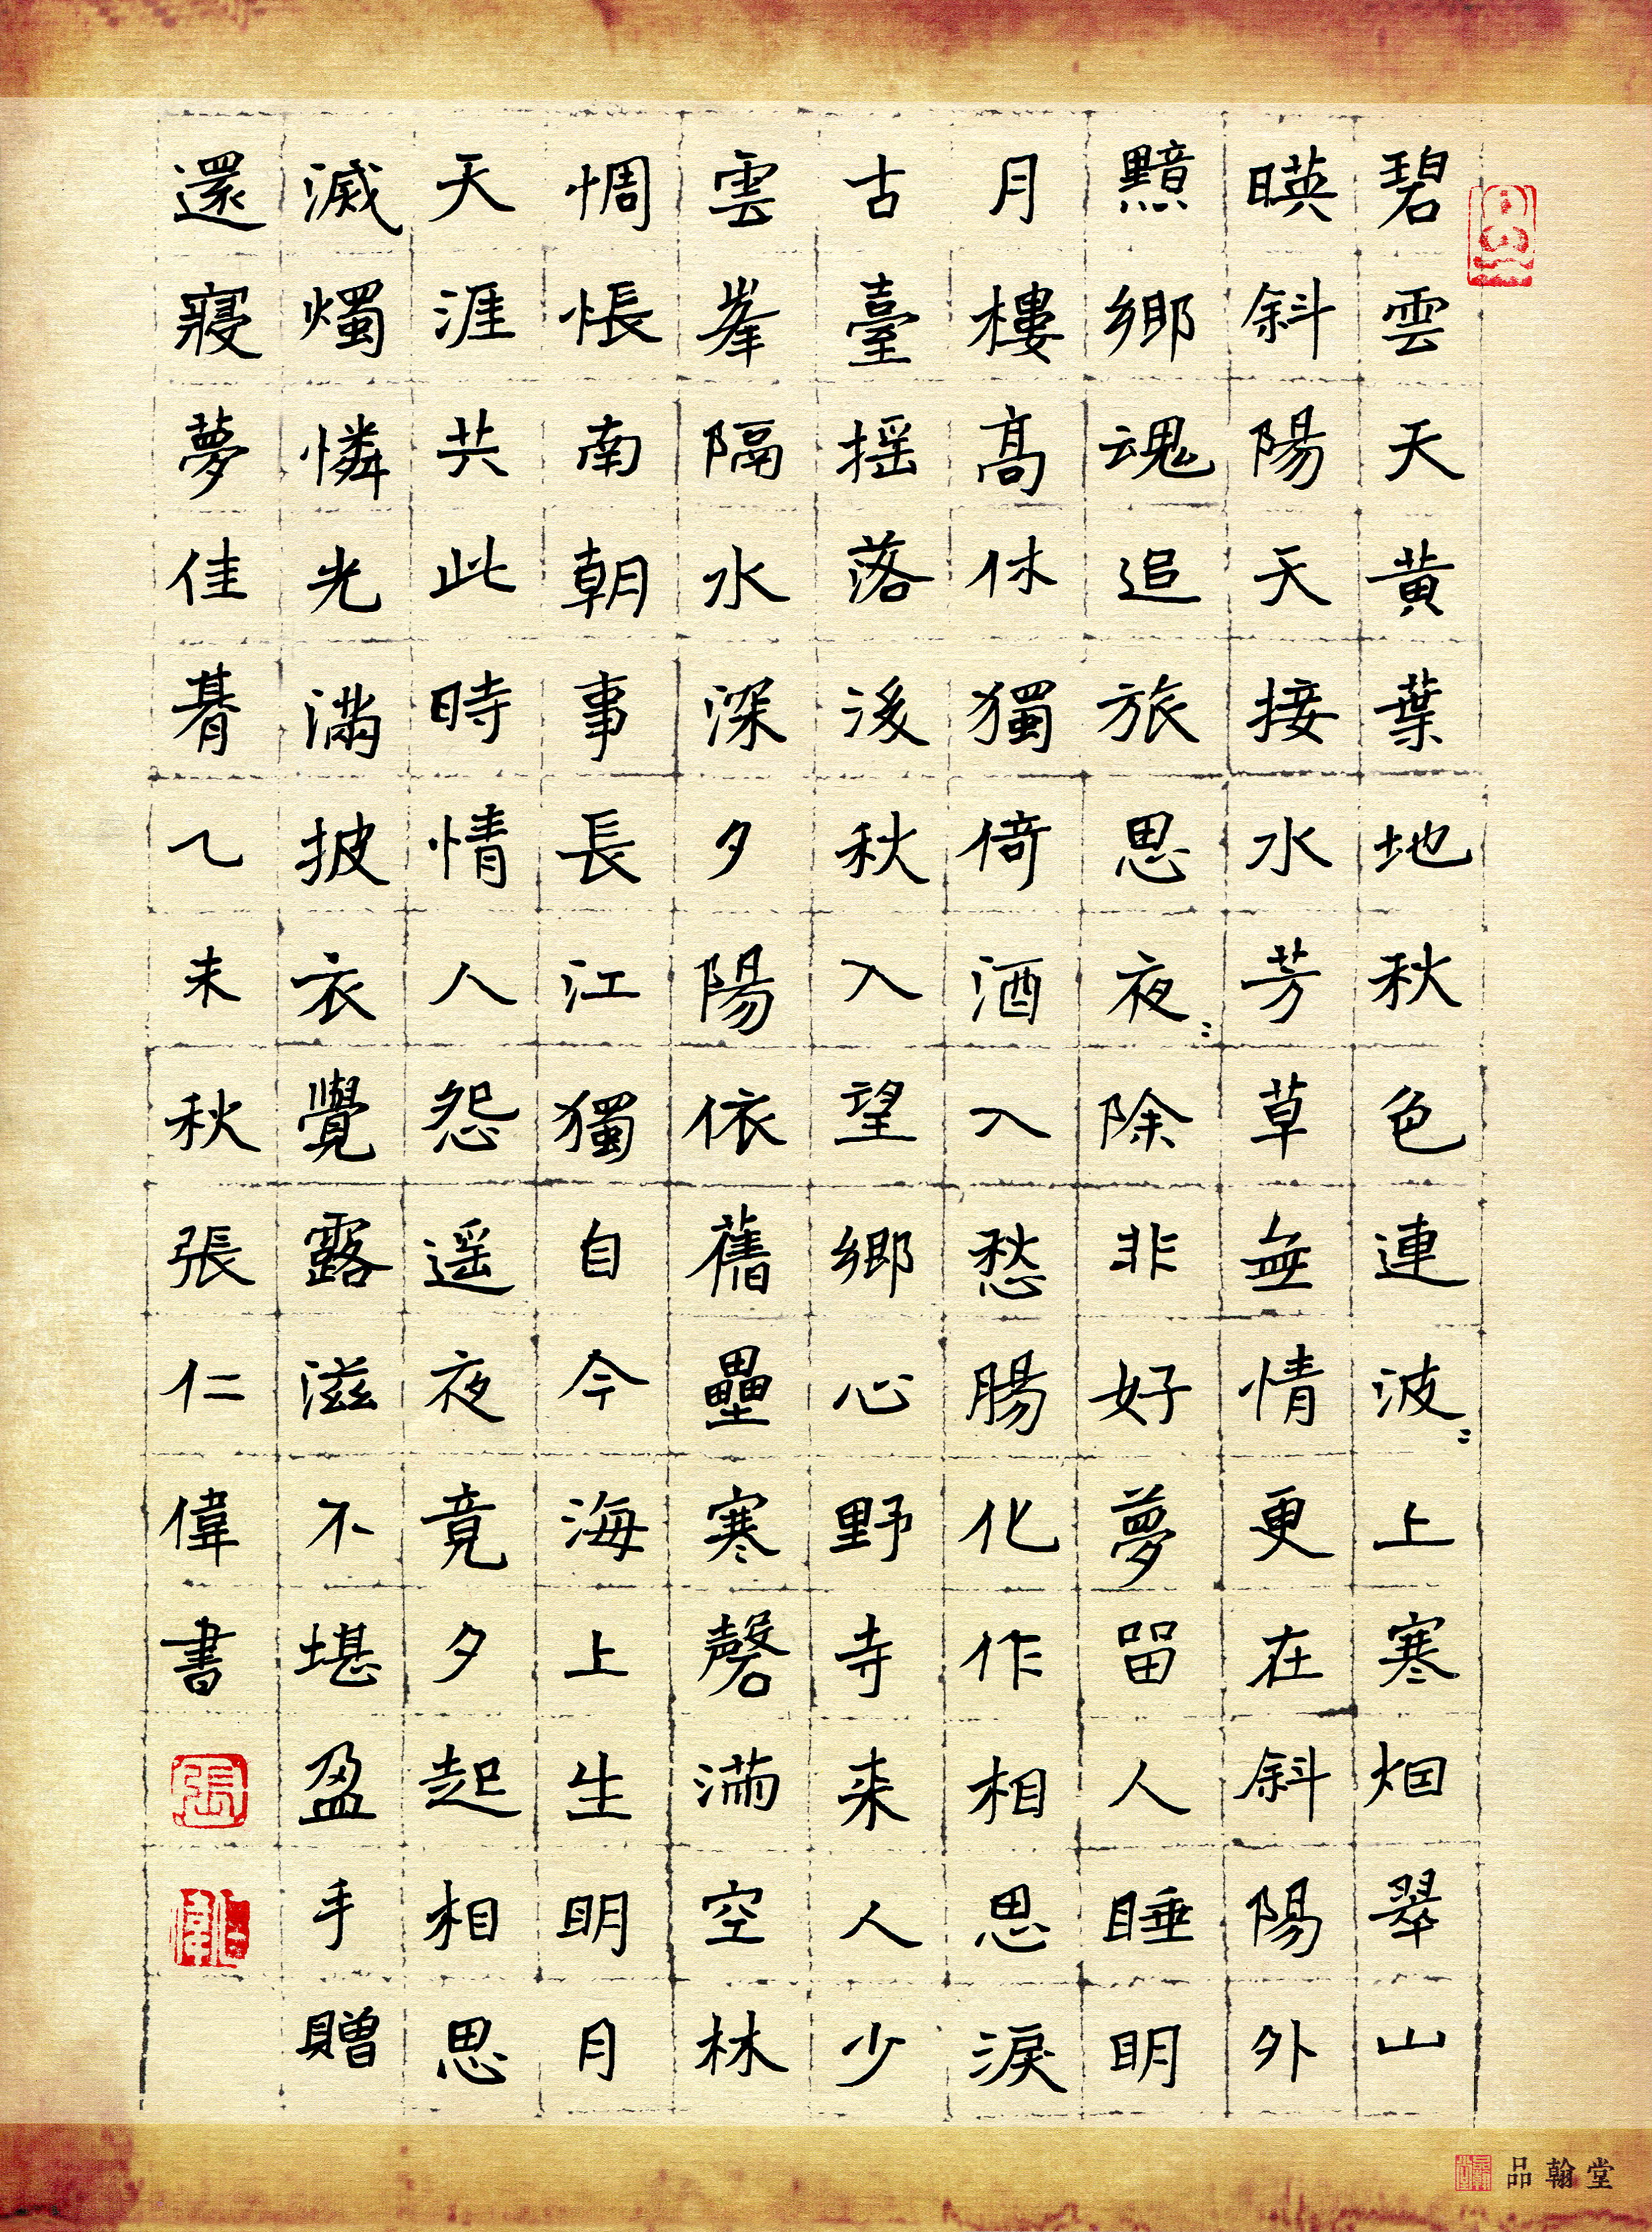 碧雲天黄葉地秋色連波〻上寒烟翠山
暎斜陽天接水芳草無情更在斜陽外
黯鄉魂追旅思夜〻除非好夢留人睡明
月樓高休獨倚酒入愁腸化作相思淚
古臺摇落後秋入望鄉心野寺来人少
雲峯隔水深夕陽依舊壘寒磬滿空林
惆悵南朝事長江獨自今海上生明月
天涯共此時情人怨遥夜竟夕起相思
滅燭憐光滿披衣覺露滋不堪盈手贈
還寢夢佳朞乙未秋張仁偉書
張
品翰堂